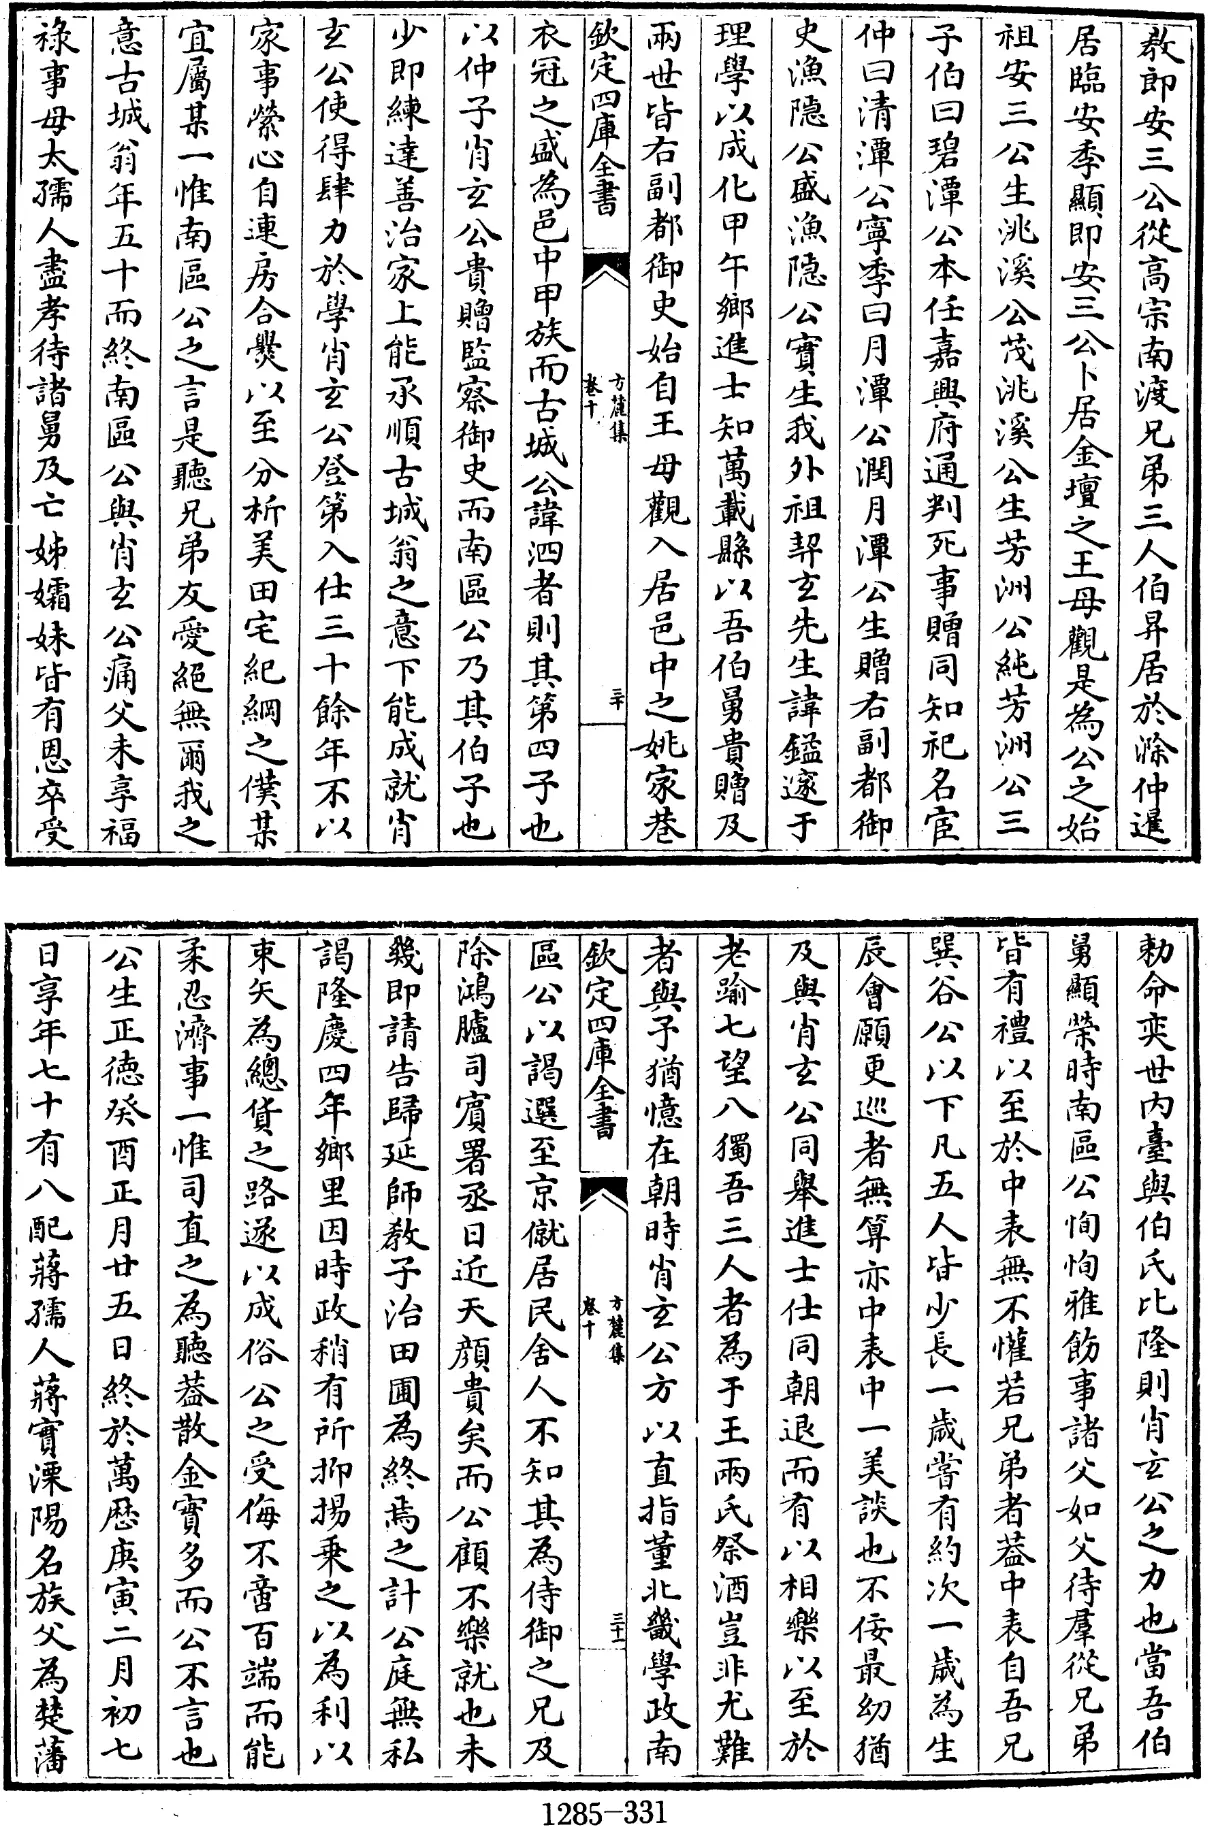 敎郎安三公從高宗南渡兄弟三人伯昇居於滁仲暹
居臨安季顯即安三公卜居金壇之王母觀是為公之始
祖安三公生洮溪公茂洮溪公生芳洲公純芳洲公三
子伯曰碧潭公本任嘉興府通判死事贈同知祀名宦
仲曰清潭公寧季曰月潭公潤月潭公生贈右副都御
史漁隱公盛漁隱公實生我外祖契玄先生諱鎰邃于
理學以成化甲午鄉進士知萬載縣以吾伯舅貴贈及
兩世皆右副都御史始自王母觀入居邑中之姚家巷
欽定四庫全書
方麓集
卷十
三十
衣冠之盛為邑中甲族而古城公諱泗者則其第四子也
以仲子肖玄公貴贈監察御史而南區公乃其伯子也
少即練達善治家上能承順古城翁之意下能成就肖
玄公使得肆力於學肖玄公登第入仕三十餘年不以
家事縈心自連房合㸑以至分析美田宅紀綱之僕某
宜屬某一惟南區公之言是聽兄弟友愛絕無爾我之
意古城翁年五十而終南區公與肖玄公痛父未享福
祿事母太孺人盡孝待諸舅及亡姊孀妹皆有恩卒受
勅命奕世内臺與伯氏比隆則肖玄公之力也當吾伯
舅顯榮時南區公恂恂雅飭事諸父如父待羣從兄弟
皆有禮以至於中表無不懽若兄弟者葢中表自吾兄
巽谷公以下凡五人皆少長一歲嘗有約次一歲為生
辰會願更巡者無算亦中表中一美談也不佞最幼猶
及與肖玄公同舉進士仕同朝退而有以相樂以至於
老踰七望八獨吾三人者為于王兩氏祭酒豈非尤難
者與予猶憶在朝時肖玄公方以直指董北畿學政南
欽定四庫全書
方麓集
卷十
三十一
區公以謁選至京僦居民舍人不知其為侍御之兄及
除鴻臚司賓署丞日近天顏貴矣而公顧不樂就也未
幾即請告歸延師教子治田圃為終焉之計公庭無私
謁隆慶四年鄉里因時政稍有所抑揚乗之以為利以
東矢為總貨之路遂以成俗公之受侮不啻百端而能
柔忍濟事一惟司直之為聽葢散金實多而公不言也
公生正德癸酉正月廿五日終於萬厯庚寅二月初七
日享年七十有八配蔣孺人蔣實溧陽名族父為楚藩
1285-331